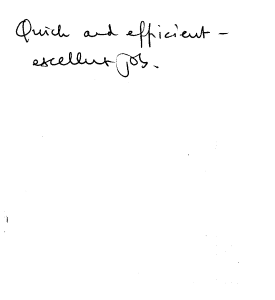 Quick and efficient -
excellent job.